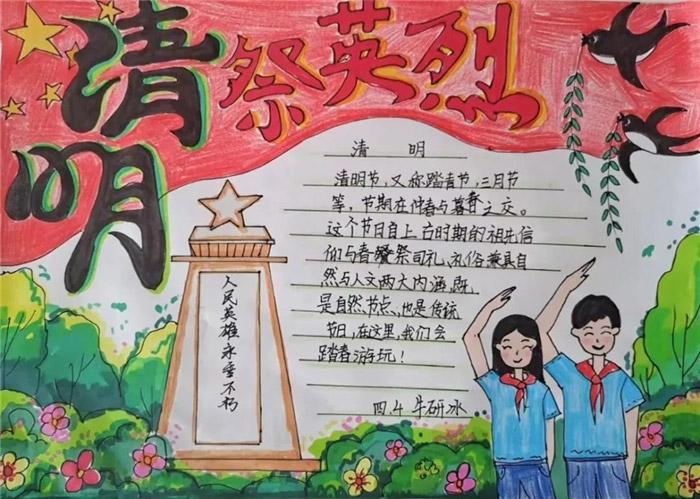 清明
祭英烈
清 明
清明节,又称踏青节,三月节
等,节期在仲春与暮春之交。
这个节日自上古时期的祖先信
仰与春祭司礼,礼俗兼具自
然与人文两大内涵,既
是自然节点,也是传统
节日,在这里,我们会
踏春游玩!
四.4 牛研冰
人民英雄永垂不朽